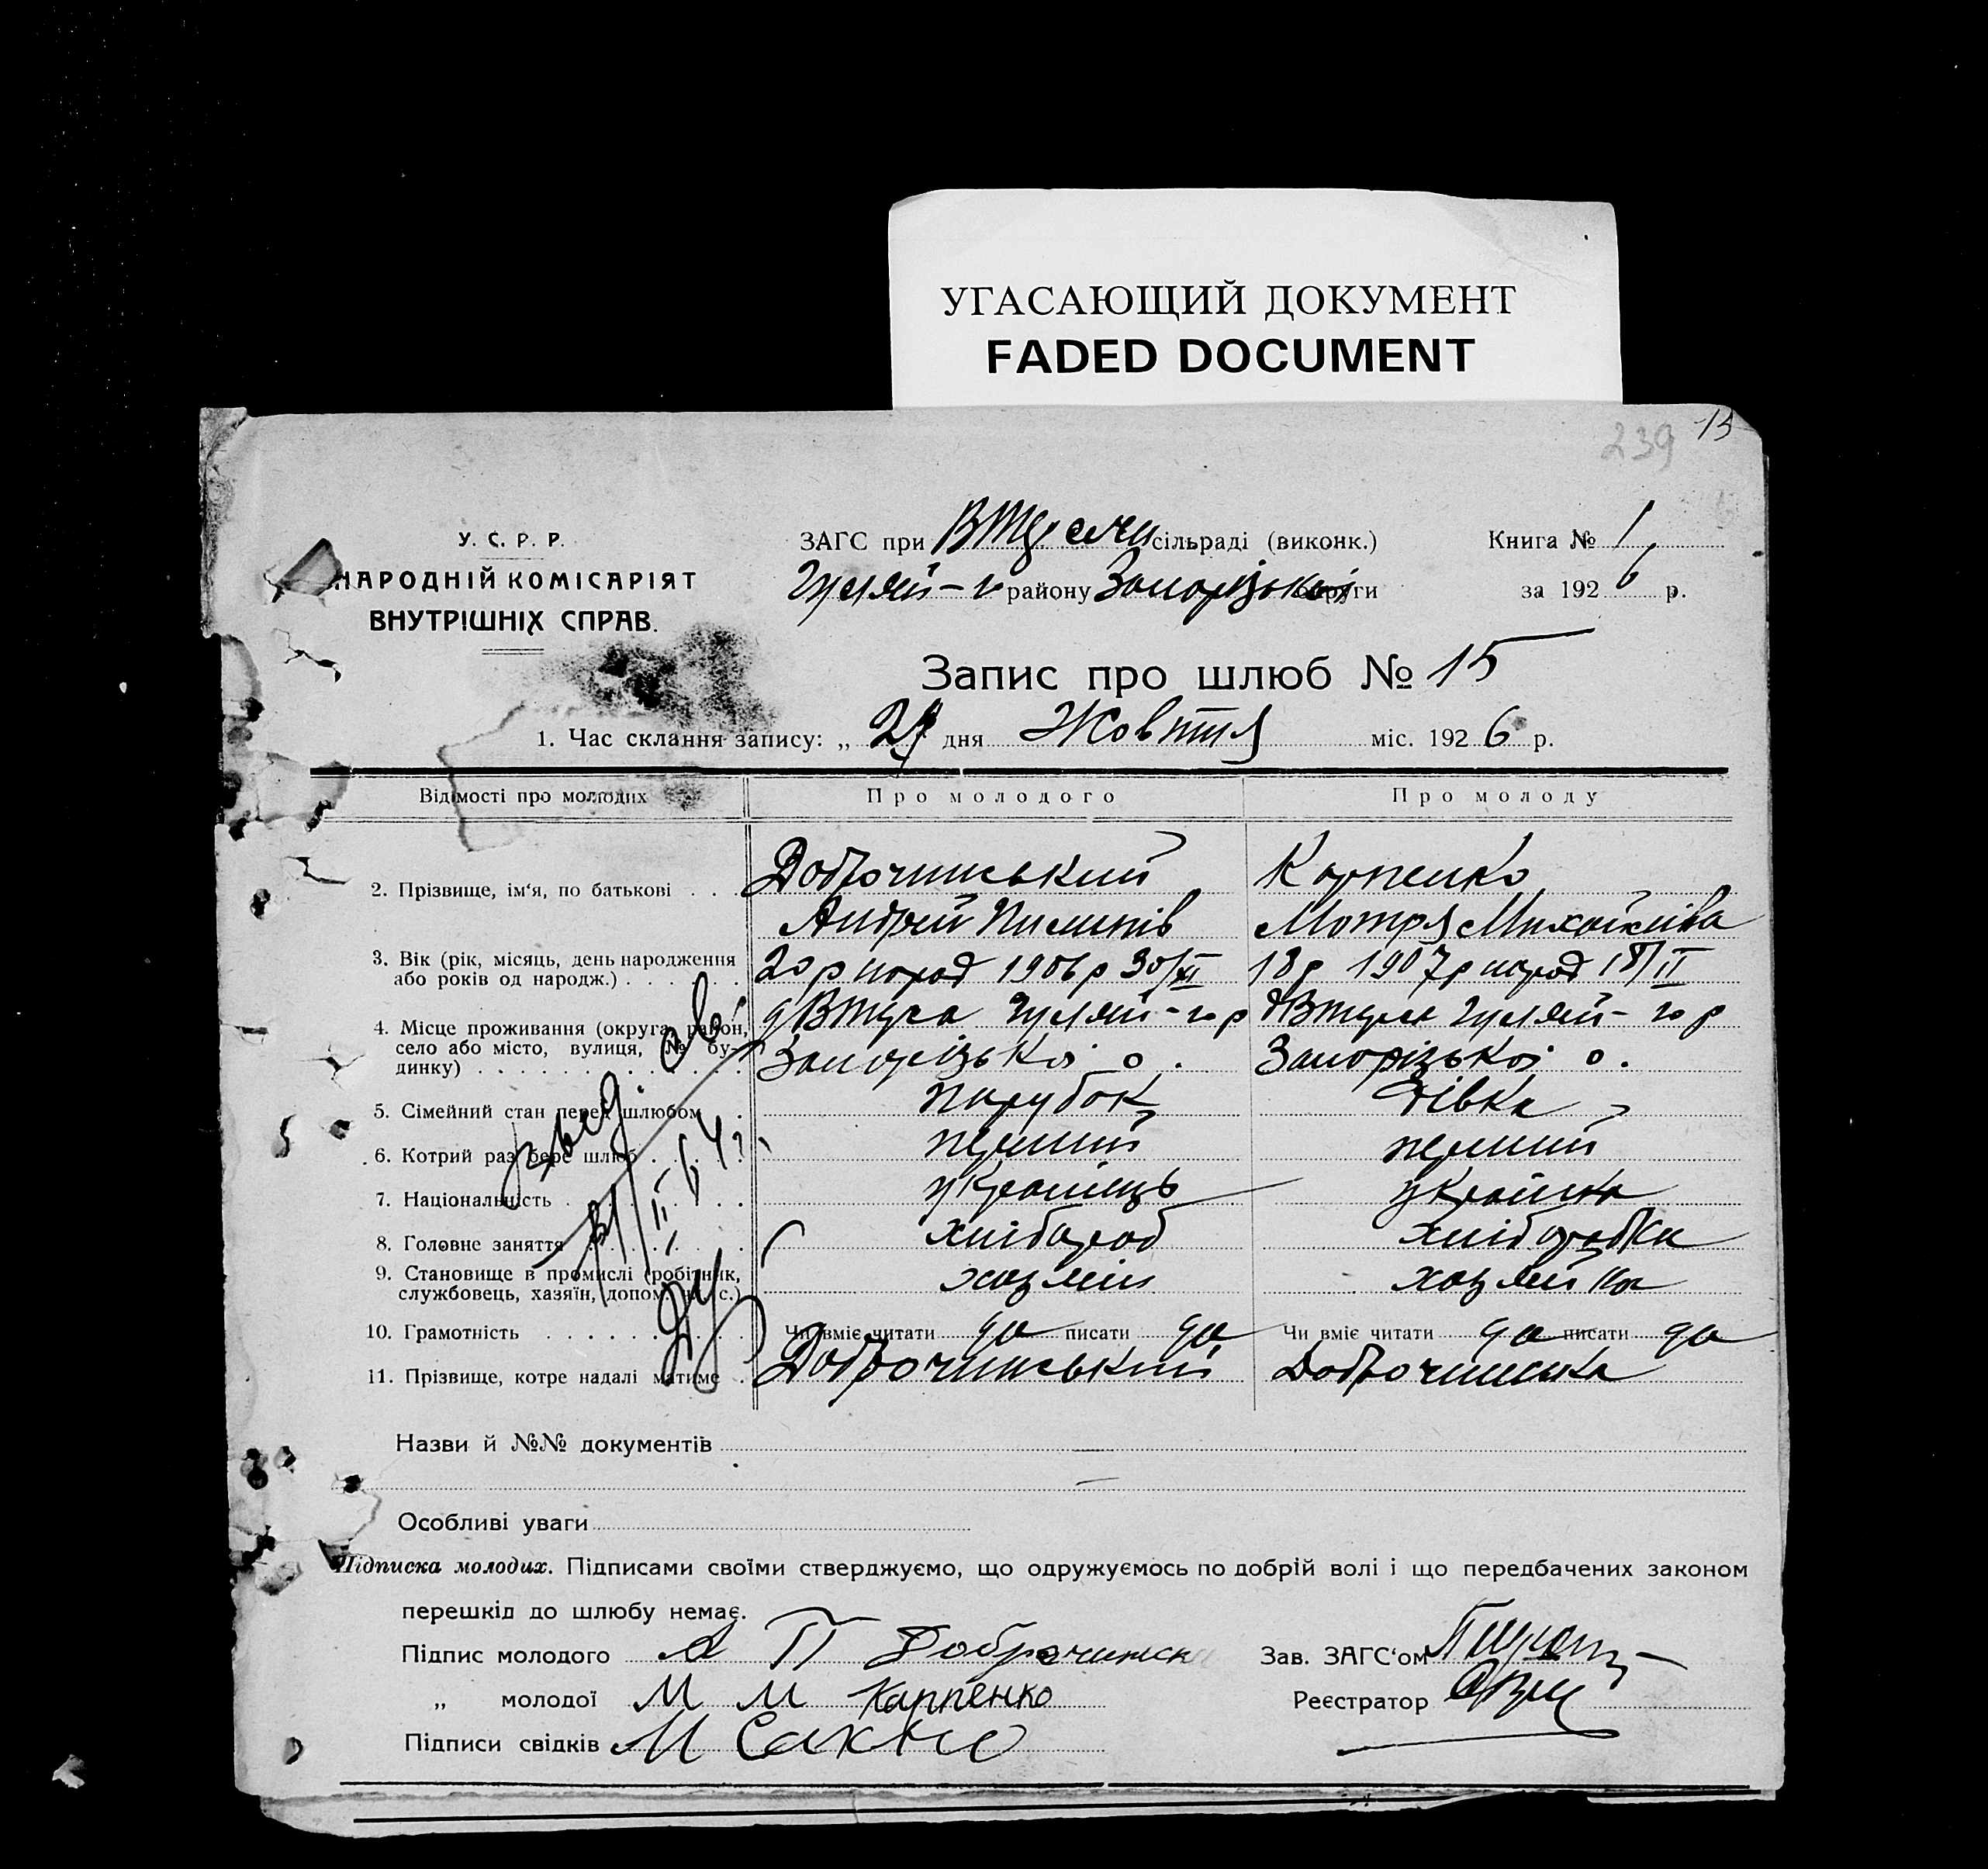 УГАСАЮЩИЙ ДОКУМЕНТ
FADED DOCUMENT
239 15
У. С. Р. Р.
НАРОДНІЙ КОМІСАРІЯТ
ВНУТРІШНІХ СПРАВ.
ЗАГС при сільраді (виконк.) Книга № 1
Гуляй-п району Запорізької округи за 1926 р.
Запис про шлюб № 15
1. Час склання запису: „ дня Жовтня міс. 1926 р.
Відомості про молодих Про молодого Про молоду
2. Прізвище, ім'я, по батькові . . . Доброчинський Карпенко
Андрій Пилипів Мотря Михайлівна
3. Вік (рік, місяць, день народження або років од народж.) . . . . . . 20 р народ 1906 р 30/XI 18 р 1907 р народ 18/II
4. Місце проживання (округа, район, село або місто, вулиця, № будинку) . . . . . . . . . . . . . Запорізької о. Запорізької о.
5. Сімейний стан перед шлюбом . парубок дівка
6. Котрий раз бере шлюб . . . . . перший перший
7. Національність . . . . . . . . українець українка
8. Головне заняття . . . . . . . . хлібороб хліборобка
9. Становище в промислі (робітник, службовець, хазяїн, допом. ч. с.) хазяїн хазяйка
10. Грамотність . . . . . . . . . . Чи вміє читати да писати да Чи вміє читати да писати да
11. Прізвище, котре надалі матиме . Доброчинський Доброчинська
Назви й №№ документів
Особливі уваги
Підписка молодих. Підписами своїми стверджуємо, що одружуємось по добрій волі і що передбачених законом
перешкід до шлюбу немає.
Підпис молодого А П Доброчинск Зав. ЗАГС'ом
„ молодої М М Карпенко Реєстратор
Підписи свідків М Сахно